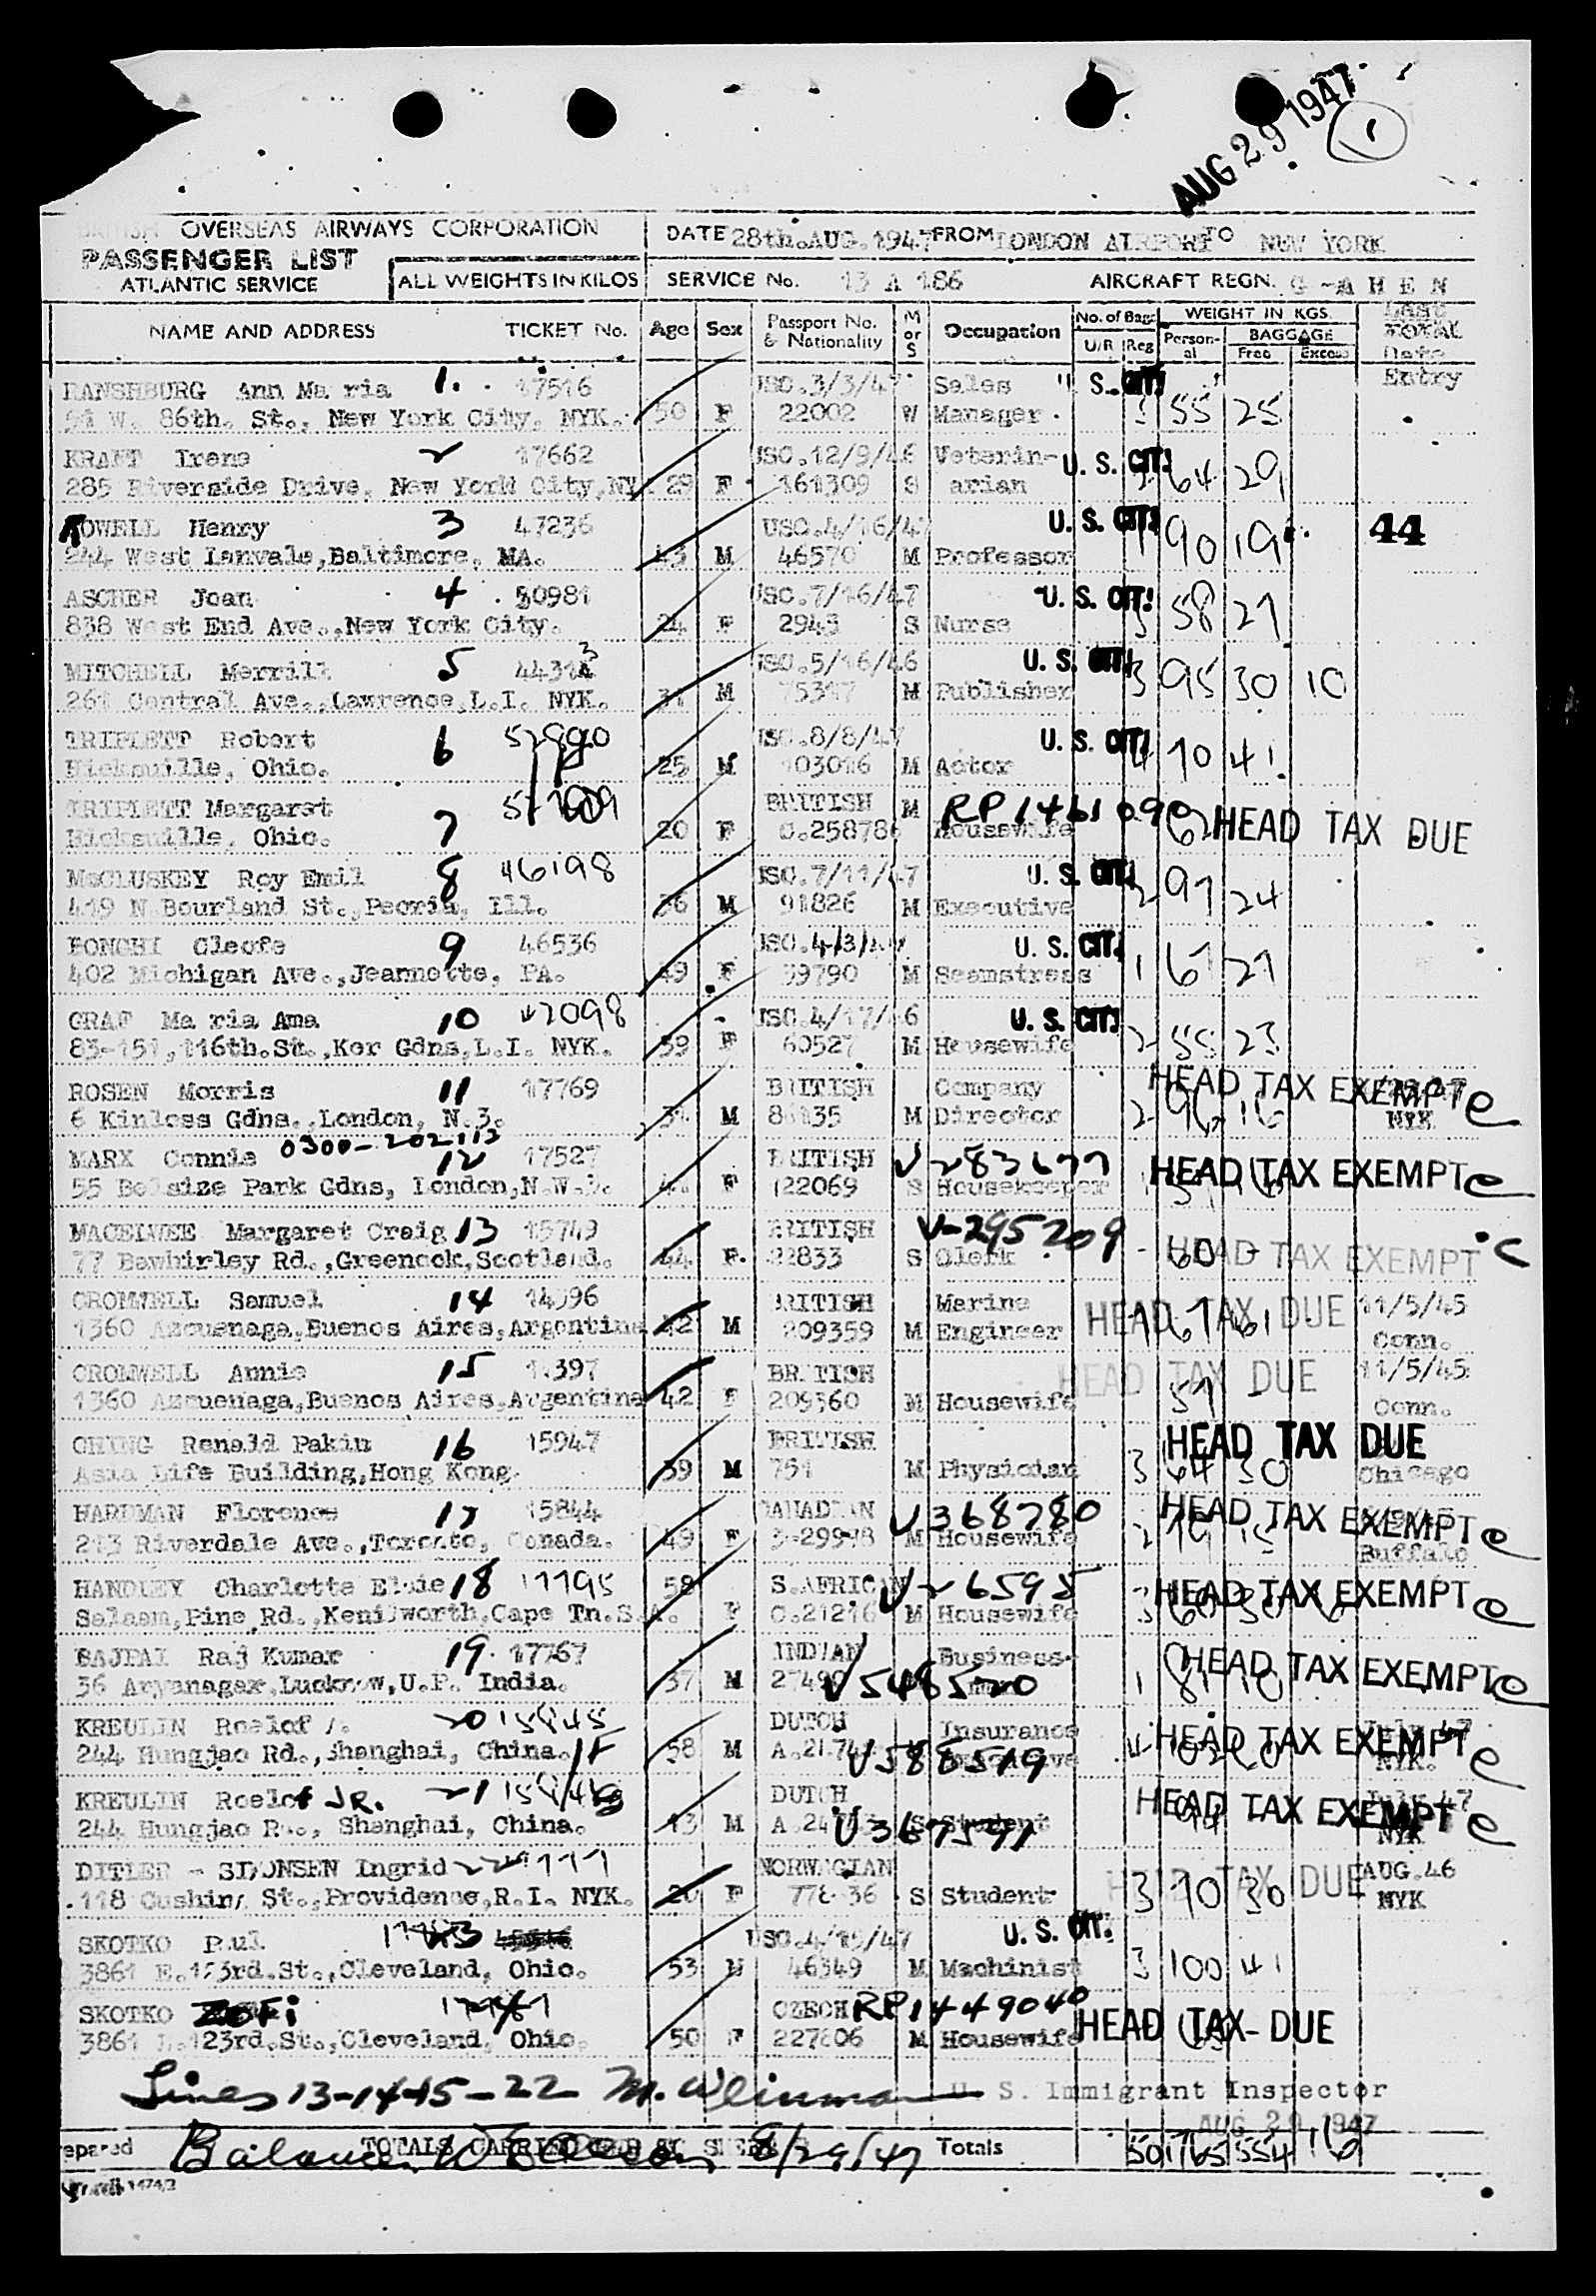 AUG 29 1947
1
BRITISH OVERSEAS AIRWAYS CORPORATION
PASSENGER LIST
ATLANTIC SERVICE
ALL WEIGHTS IN KILOS
DATE 28th.AUG.1947 FROM LONDON AIRPORT TO NEW YORK
SERVICE No. 13 A 186 AIRCRAFT REGN. G-AHEN
NAME AND ADDRESS TICKET No. Age Sex Passport No. & Nationality M or S Occupation No. of Bags U/R Reg WEIGHT IN KGS. Personal BAGGAGE Free Excess Last TOTAL Date Entry
Ann Maria 1. 17516 USC.3/3/47 Sales U. S. CIT!
W. 86th. St., New York City, NYK. 50 F 22002 W Manager 3 55 25
KRAFT Irene 2 17662 USC.12/9/46 Veterin- U. S. CIT!
285 Riverside Drive, New York City,NY. 29 F 161309 S arian 64 29
Henry 3 47236 USC.4/16/47 U. S. CIT! 44
244 West Lanvale,Baltimore, MA. 43 M 46570 M Professor 1 90 19
ASCHER Joan 4 50981 USC.7/16/47 U. S. CIT!
838 West End Ave.,New York City. 24 F 2943 S Nurse 3 58 27
MITCHELL Merrill 5 USC.5/16/46 U. S. CIT!
261 Central Ave.,Lawrence,L.I. NYK. 31 M 75317 M Publisher 3 95 30 10
TRIPLETT Robert 6 USC.8/8/47 U. S. CIT!
Hicksville, Ohio. 25 M 103016 M Actor 4 70 41
TRIPLETT Margaret BRITISH M RP1461090
Hicksville, Ohio. 7 20 F C.258786 Housewife 62 HEAD TAX DUE
McCLUSKEY Roy Emil 8 46198 USC.7/11/47 U. S. CIT!
419 N.Bourland St.,Peoria, Ill. 36 M 91826 M Executive 2 97 24
Cleofe 9 46536 USC.4/3/47 U. S. CIT!
402 Michigan Ave.,Jeannette, PA. 49 F 39790 M Seamstress 1 67 27
GRAF Maria Ama 10 42098 USC.4/17/46 U. S. CIT!
83-151,116th.St.,Kew Gdns,L.I. NYK. 59 F 60527 M Housewife 2 55 23
ROSEN Morris 11 17769 BRITISH Company HEAD TAX EXEMPT
6 Kinloss Gdns.,London, N.3. 31 M 86135 M Director 2 96 16 NYK
0300-202113
MARX Connie 12 17527 BRITISH V283677 HEAD TAX EXEMPT
55 Belsize Park Gdns, London,N.W.3. F 122069 S Housekeeper
Margaret Craig 13 15749 BRITISH V-295209
77 Bawhirley Rd.,Greenock,Scotland. 44 F. 22833 S Clerk - 60 - HEAD TAX EXEMPT
CROMWELL Samuel 14 14396 BRITISH Marine HEAD TAX DUE 11/5/45
1360 Azcuenaga,Buenos Aires,Argentina 42 M 209359 M Engineer Conn.
CROMWELL Annie 15 BRITISH HEAD TAX DUE 11/5/45
1360 Azcuenaga,Buenos Aires,Argentina 42 F 209360 M Housewife 57 Conn.
CHUNG Renald Pakin 16 15947 BRITISH HEAD TAX DUE
Asia Life Building,Hong Kong. 39 M 751 M Physician 3 64 30 Chicago
HARDMAN Florence 17 15844 CANADIAN V368780 HEAD TAX EXEMPT
213 Riverdale Ave.,Toronto, Canada. 49 F M Housewife 2 79 15 Buffalo
HANDLEY Charlotte Elsie 18 17795 58 S.AFRICAN V26595 HEAD TAX EXEMPT
Salaam,Pine Rd.,Kenilworth,Cape Tn.S.A. F C.21216 M Housewife 3 60 30
BAJPAI Raj Kumar 19. 17767 INDIAN Business- HEAD TAX EXEMPT
36 Aryanagar,Lucknow,U.P. India. 37 M V548520 1 81
KREULIN Roelof 20 15845 DUTCH Insurance HEAD TAX EXEMPT
244 Hungjao Rd.,Shanghai, China. 58 M V588519 NYK.
KREULIN Roelof JR. 21 DUTCH HEAD TAX EXEMPT July 47
244 Hungjao Rd., Shanghai, China. 13 M V367597 S Student NYK
DITLEF - SIMONSEN Ingrid 22 NORWEGIAN HEAD TAX DUE AUG.46
118 Cushing St.,Providence,R.I. NYK. 20 F S Student 3 70 30 NYK
SKOTKO Paul USC.4/15/47 U. S. CIT.
3861 E.123rd.St.,Cleveland, Ohio. 53 M 46349 M Machinist 3 100 41
SKOTKO ZOFI CZECH RP1449040
3861 E.123rd.St.,Cleveland, Ohio. 50 F 227606 M Housewife HEAD TAX DUE
Lines 13-14-15-22 M. Weinman U. S. Immigrant Inspector
AUG 29 1947
Prepared TOTALS CARRIED Balance 8/29/47 Totals 50 1765 554 16